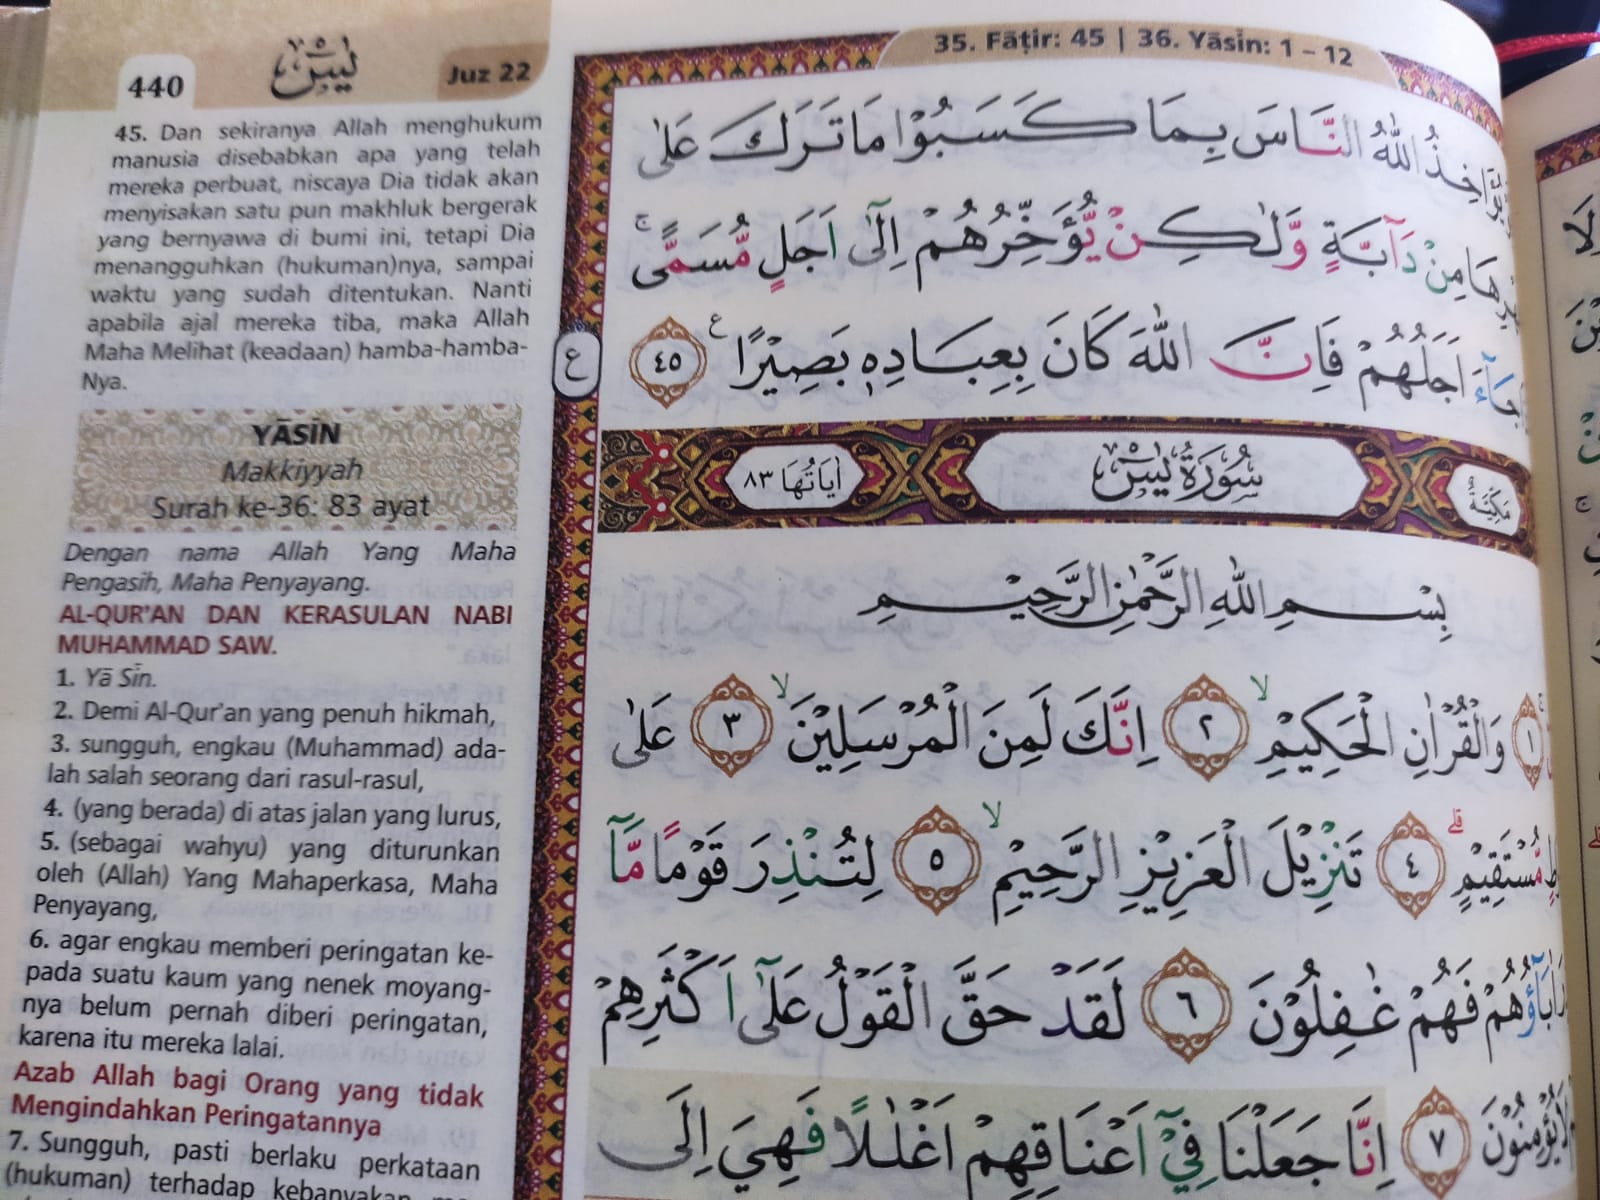 440
يٰسۤ
Juz 22
35. Fāṭir: 45 | 36. Yāsīn: 1 – 12
45. Dan sekiranya Allah menghukum
manusia disebabkan apa yang telah
mereka perbuat, niscaya Dia tidak akan
menyisakan satu pun makhluk bergerak
yang bernyawa di bumi ini, tetapi Dia
menangguhkan (hukuman)nya, sampai
waktu yang sudah ditentukan. Nanti
apabila ajal mereka tiba, maka Allah
Maha Melihat (keadaan) hamba-hamba-
Nya.
YĀSĪN
Makkiyyah
Surah ke-36: 83 ayat
Dengan nama Allah Yang Maha
Pengasih, Maha Penyayang.
AL-QUR'AN DAN KERASULAN NABI
MUHAMMAD SAW.
1. Yā Sīn.
2. Demi Al-Qur'an yang penuh hikmah,
3. sungguh, engkau (Muhammad) ada-
lah salah seorang dari rasul-rasul,
4. (yang berada) di atas jalan yang lurus,
5. (sebagai wahyu) yang diturunkan
oleh (Allah) Yang Mahaperkasa, Maha
Penyayang,
6. agar engkau memberi peringatan ke-
pada suatu kaum yang nenek moyang-
nya belum pernah diberi peringatan,
karena itu mereka lalai.
Azab Allah bagi Orang yang tidak
Mengindahkan Peringatannya
7. Sungguh, pasti berlaku perkataan
(hukuman) terhadap kebanyakan
اللّٰهُ النَّاسَ بِمَا كَسَبُوْا مَا تَرَكَ عَلٰى
مِنْ دَاۤبَّةٍ وَّلٰكِنْ يُّؤَخِّرُهُمْ اِلٰٓى اَجَلٍ مُّسَمًّىۚ
جَاۤءَ اَجَلُهُمْ فَاِنَّ اللّٰهَ كَانَ بِعِبَادِهٖ بَصِيْرًا ࣖ ٤٥
ع
مَكِّيَّةٌ
سُوْرَةُ يٰسۤ
اٰيَاتُهَا ٨٣
بِسْمِ اللّٰهِ الرَّحْمٰنِ الرَّحِيْمِ
١ وَالْقُرْاٰنِ الْحَكِيْمِۙ ٢ اِنَّكَ لَمِنَ الْمُرْسَلِيْنَۙ ٣ عَلٰى
مُّسْتَقِيْمٍۗ ٤ تَنْزِيْلَ الْعَزِيْزِ الرَّحِيْمِۙ ٥ لِتُنْذِرَ قَوْمًا مَّآ
اٰبَاۤؤُهُمْ فَهُمْ غٰفِلُوْنَ ٦ لَقَدْ حَقَّ الْقَوْلُ عَلٰٓى اَكْثَرِهِمْ
لَا يُؤْمِنُوْنَ ٧ اِنَّا جَعَلْنَا فِيْٓ اَعْنَاقِهِمْ اَغْلٰلًا فَهِيَ اِلَى